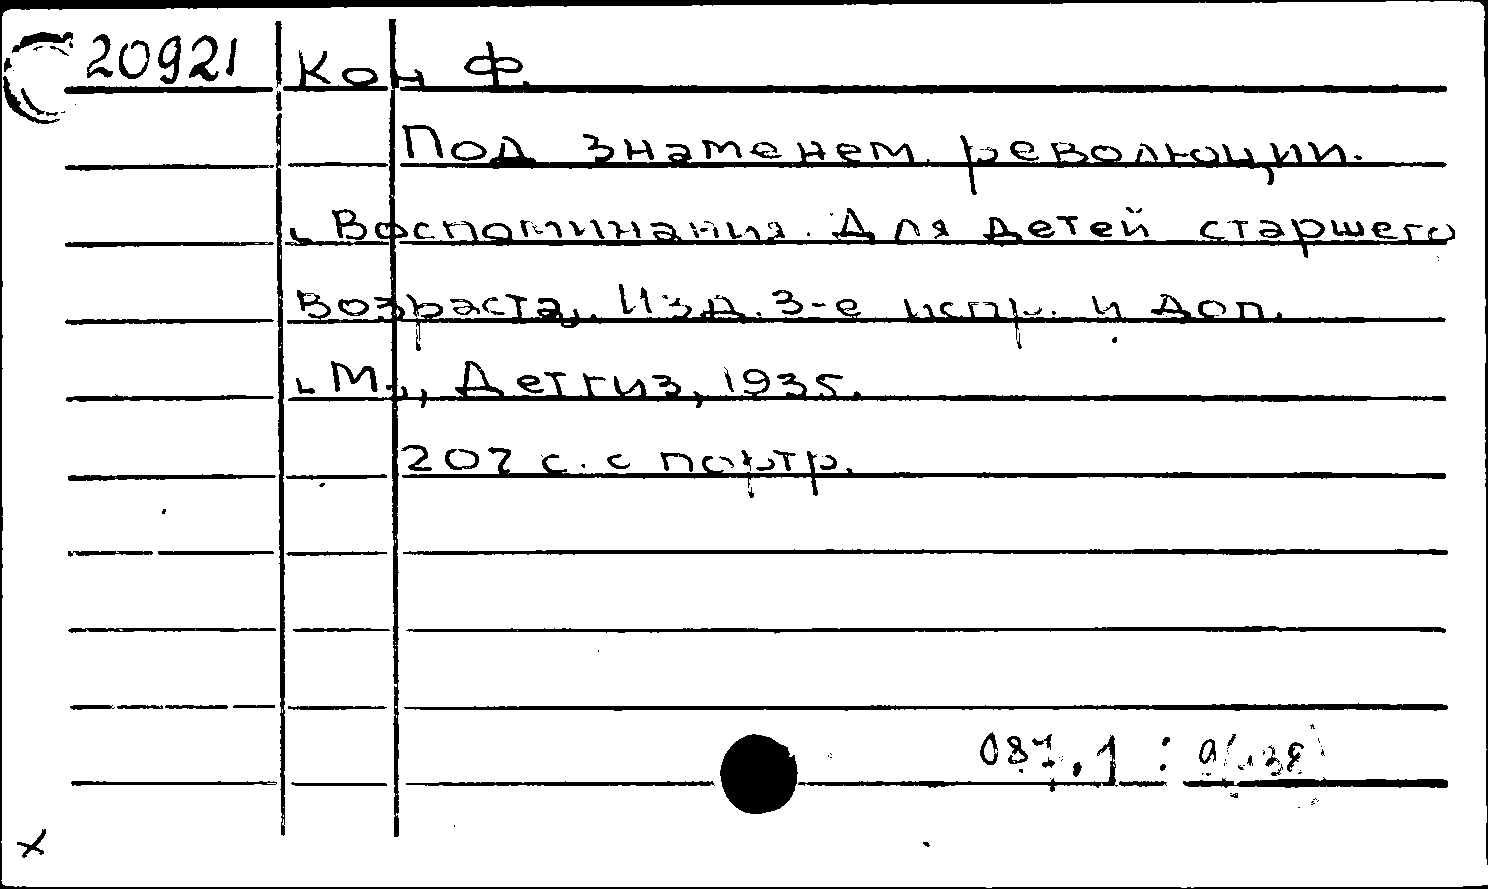 20921 Кон Ф.
Под знаменем революции.
Воспоминания. Для детей старшего
возраста. Изд. 3-е испр. и доп.
М., Детгиз, 1935.
207 с. с портр.
087.1 :
x